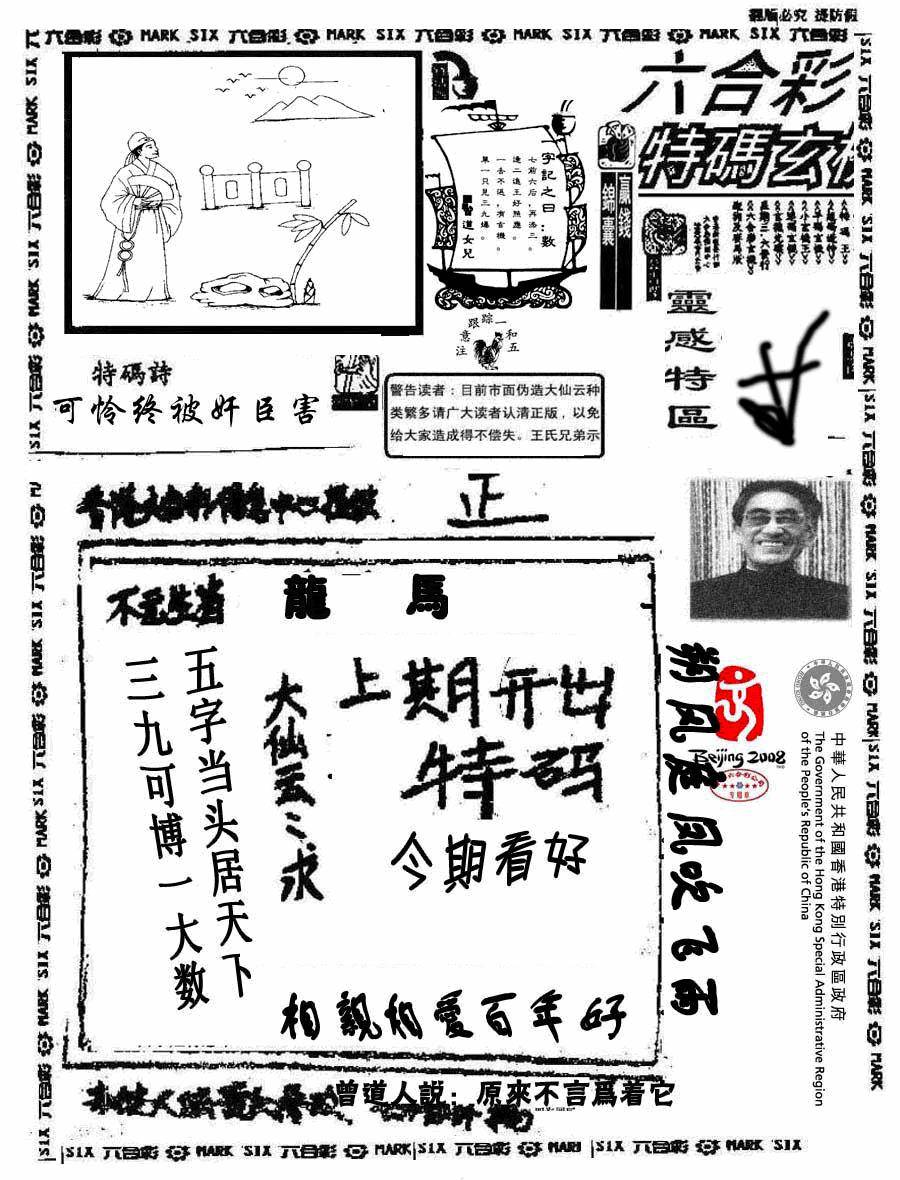 翻版必究 提防假
六合彩 MARK SIX 六合彩 MARK SIX 六合彩 MARK SIX 六合彩 MARK SIX 六合彩
六合彩
特碼玄机
贏錢
錦囊
一字記之曰：數
七前六后，再添三。
進二進王好照應。
一去不返，有玄機。
單一只見三九爆。
道女兒
跟踪一和五
注意
靈感特區
特碼詩
可怜终被奸臣害
警告读者：目前市面伪造大仙云种
类繁多请广大读者认清正版，以免
给大家造成得不偿失。王氏兄弟示
正
龍 馬
五字当头居天下
三九可博一大数
大仙云：求
上期开出
特码
今期看好
相親相愛百年好
朔风度风吹飞雨
Beijing 2008
中華人民共和國香港特別行政區政府
The Government of the Hong Kong Special Administrative Region
of the People's Republic of China
曾道人説：原來不言爲着它
SIX 六合彩 MARK SIX 六合彩 MARK SIX 六合彩 MARK SIX 六合彩 MARK SIX